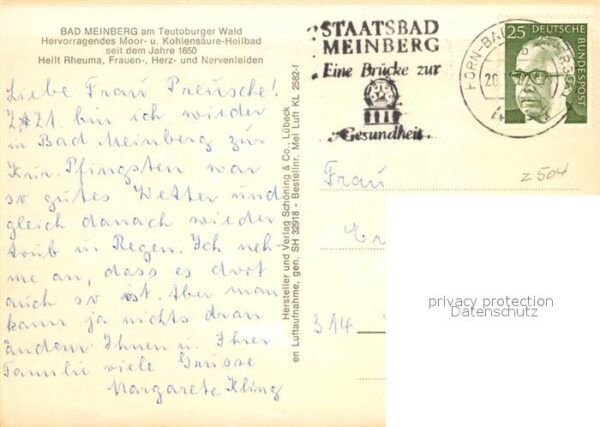 BAD MEINBERG am Teutoburger Wald
Hervorragendes Moor- u. Kohlensäure-Heilbad
seit dem Jahre 1650
Heilt Rheuma, Frauen-, Herz- und Nervenleiden
Liebe Frau Preusche!
Z. Zt. bin ich wieder
in Bad Meinberg zur
Kur. Pfingsten war
so gutes Wetter und
gleich danach wieder
trüb u. Regen. Ich neh-
me an, dass es dort
auch so ist. Aber man
kann ja nichts dran
ändern. Ihnen u. Ihrer
Familie viele Grüsse
Margarete Kling
Hersteller und Verlag Schöning & Co., Lübeck
en Luftaufnahme, gen. SH 32918 - Bestellnr. Mei Luft KL 2582-f
STAATSBAD
MEINBERG
Eine Brücke zur
Gesundheit
HORN-BAD
20.
25
DEUTSCHE
BUNDESPOST
Z 504
Frau
314
privacy protection
Datenschutz